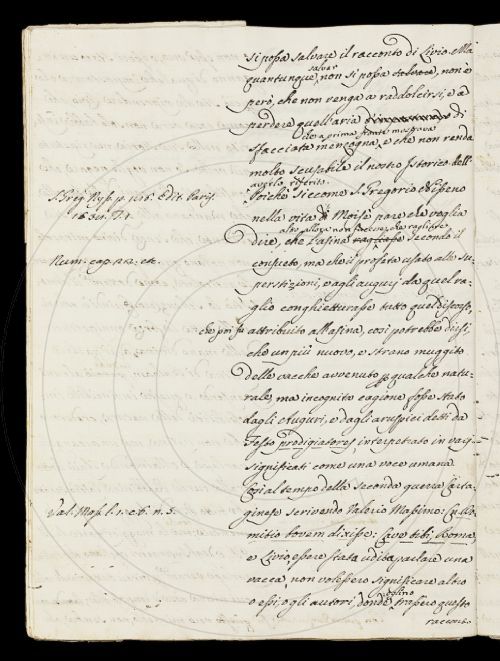 si possa salvare il racconto di Livio. Ma
quantunque salvar non si possa, non è
però, che non venga a raddolcirsi, e a
perdere quell'aria di
che a prima fronte mostrava
sfacciata menzogna, e che non renda
molto scusabile il nostro Istorico dell'
averlo riferito.
Poichè siccome S. Gregorio Nisseno
S. Greg. Nyss. p. Edit. Paris.
nella vita di Moisè pare che voglia
altro allora non facesse, che ragliare
dire, che l'asina secondo il
Num. cap. 22. etc.
consueto, ma che il profeta usato alle su-
perstizioni, e agli augurj da quel ra-
glio conghietturasse tutto quel discorso,
che poi fu attribuito all'asina, così potrebbe dirsi,
che un più nuovo, e strano muggito
delle vacche avvenuto per qualche natu-
rale, ma incognita cagione fosse stato
dagli Auguri, e dagli aruspici detti da
Festo prodigiatores, interpetrato in varj
significati come una voce umana
Così al tempo della seconda guerra Carta-
Val. Mass. l. 1. c. 6. n. 5.
ginese scrivendo Valerio Massimo:
bovem dixisse: Cave tibi, Roma,
e Livio, essere stata udita parlare una
vacca, non volessero significare altro
o essi, o gli autori, donde trassero questo
racconto